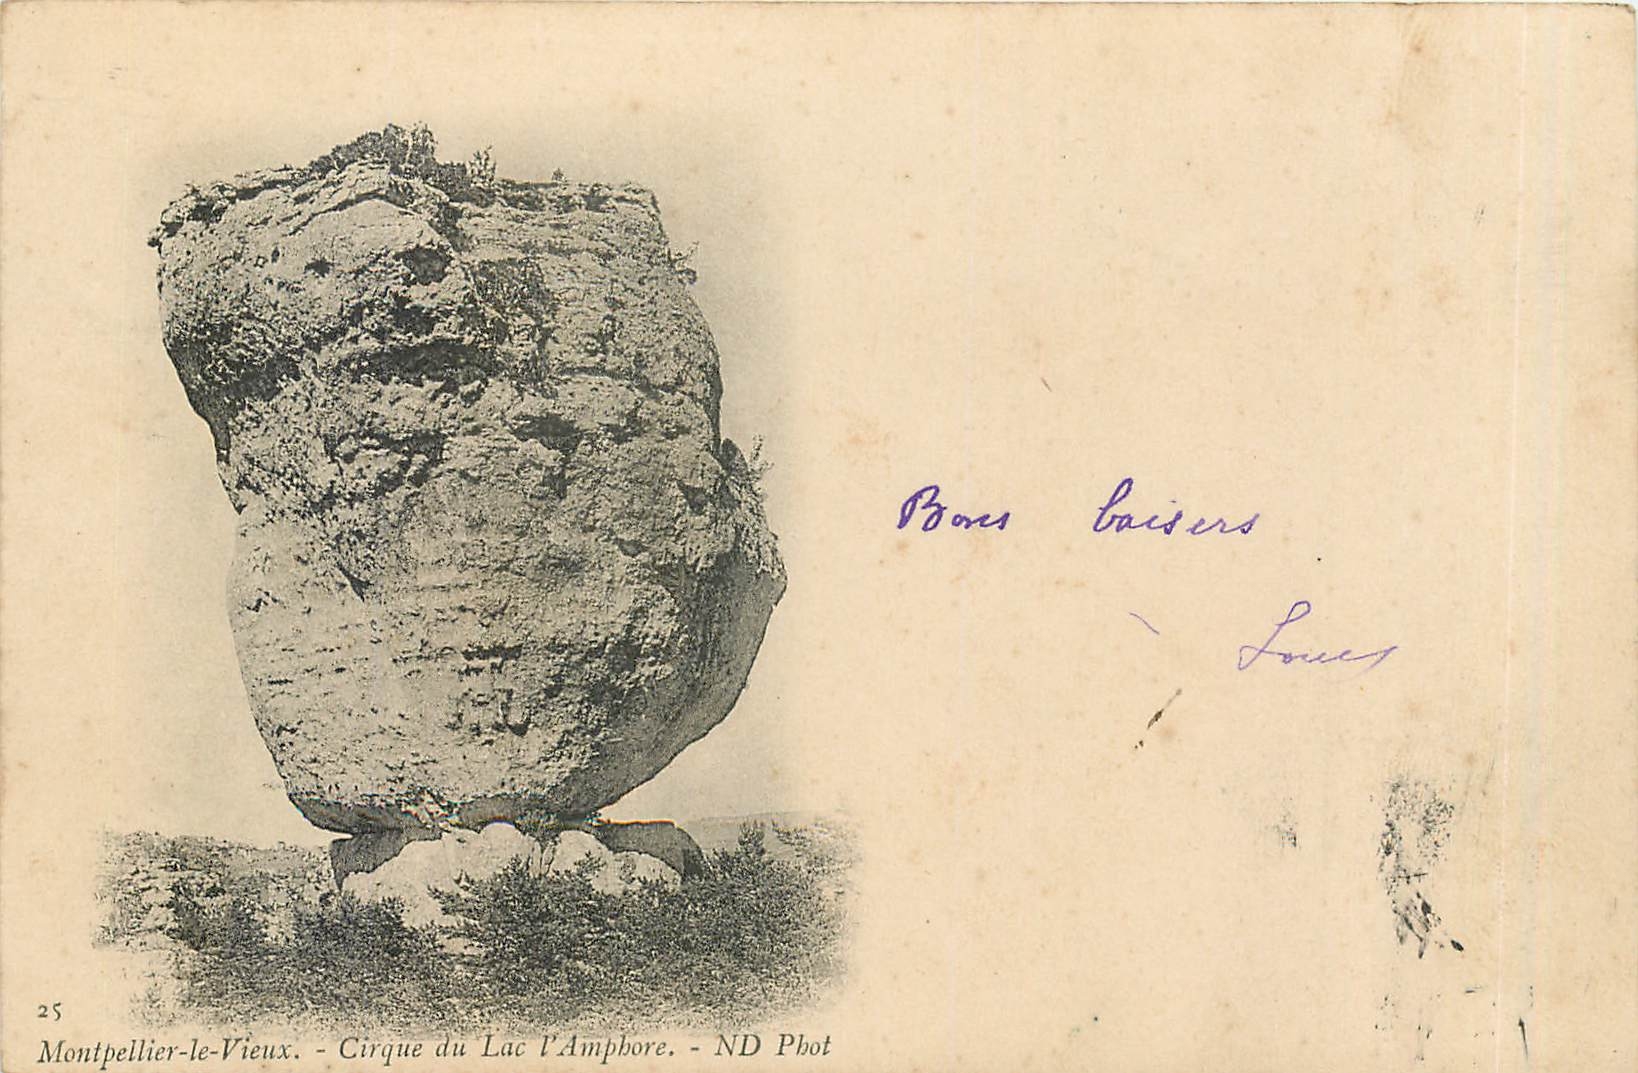 Bons baisers
Louis
25
Montpellier-le-Vieux. - Cirque du Lac l'Amphore. - ND Phot